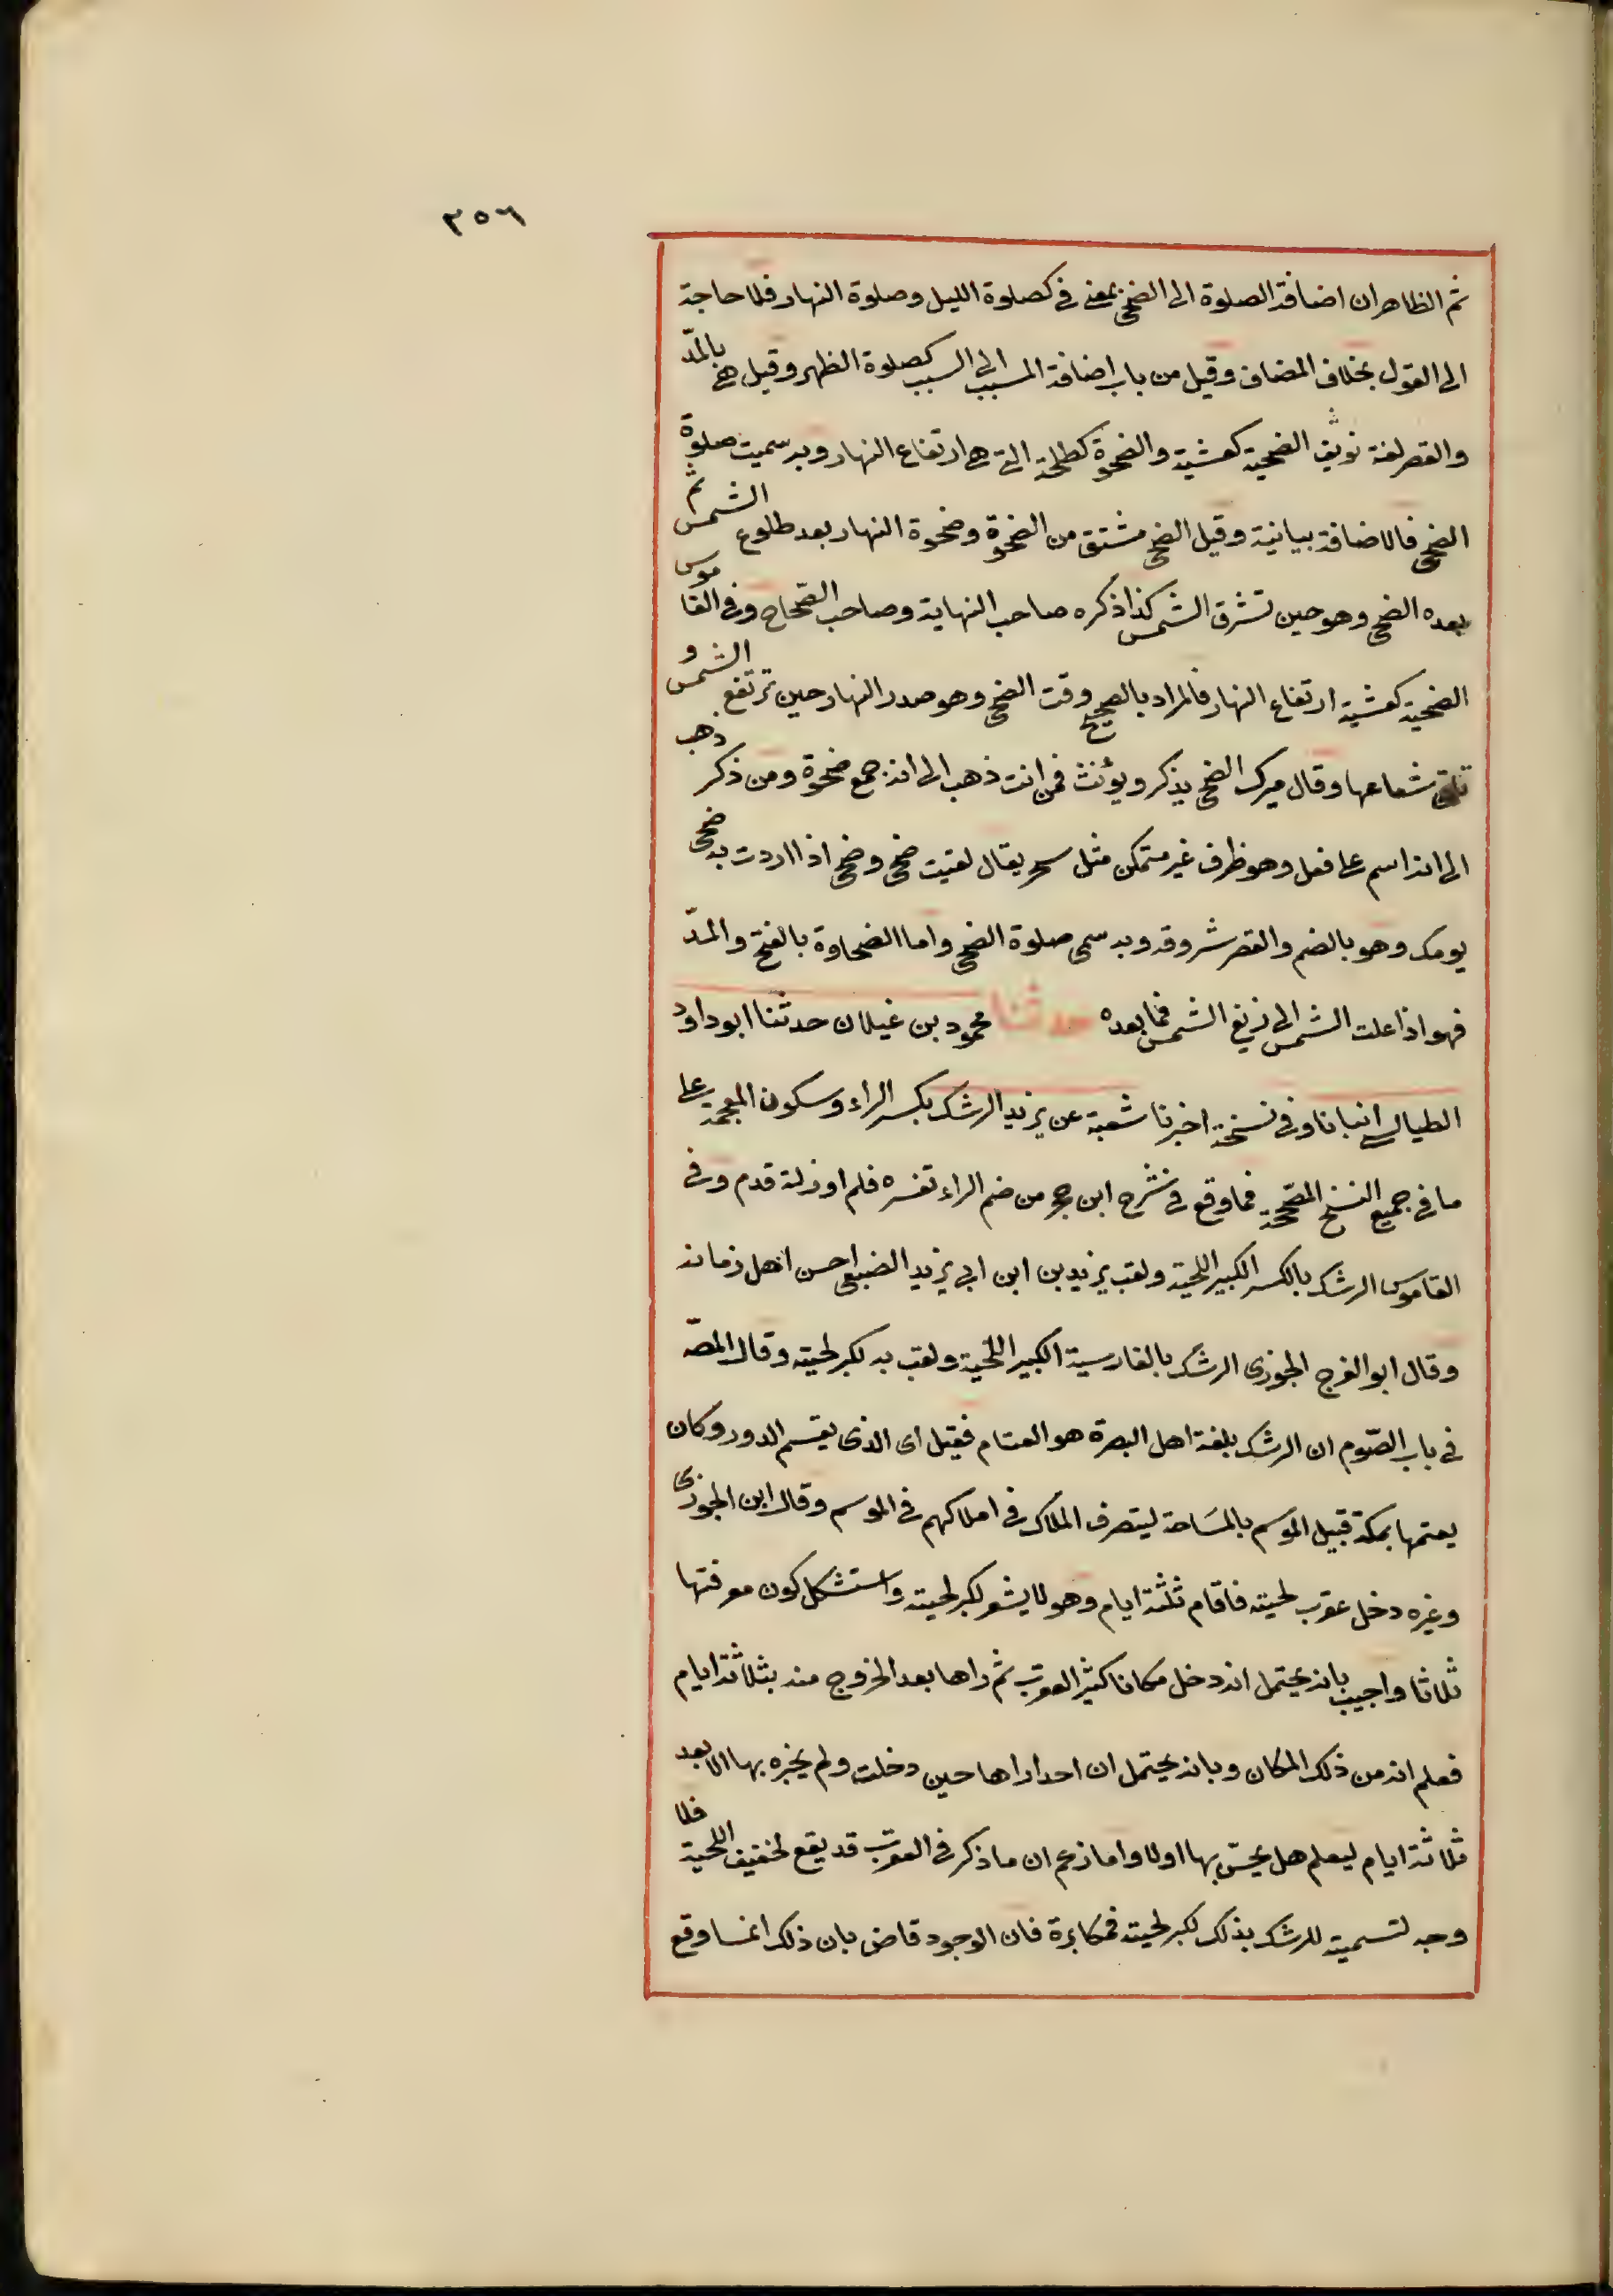 ٣٥٦
ثم الظاهر ان اضافة الصلوة الى الضحى بمعنى فى كصلوة الليل وصلوة النهار فلا حاجة
الى القول بخلاف المضاف وقيل من باب اضافة المسبب الى السبب كصلوة الظهر وقيل هى بالمدّ
والقصر لغة فويق الضحية كعشية والضحوة كطلحة التى هى ارتفاع النهار وبه سميت صلوة
الضحى فالاضافة بيانية وقيل الضحى مشتق من الضحوة وضحوة النهار بعد طلوع الشمس ثم
بعده الضحى وهو حين تشرق الشمس كذا ذكره صاحب النهاية وصاحب الصّحاح وفى القاموس
الضحية كعشية ارتفاع النهار فالمراد بالصحيح وقت الضحى وهو صدر النهار حين ترتفع الشمس و
تلقى شعاعها وقال ميرك الضحى يذكر ويؤنث فمن انث ذهب الى انه جمع ضحوة ومن ذكر ذهب
الى انه اسم على فعل وهو ظرف غير متمكن مثل سحر يقال لقيت ضحى وضحى اذا اردت به ضحى
يومك وهو بالضم والقصر شروقه وبه سمى صلوة الضحى واما الضحاوة بالفتح والمدّ
فهو اذا علت الشمس الى زيغ الشمس فما بعده حدثنا محمود بن غيلان حدثنا ابو داود
الطيالسى انبانا وفى نسخة اخبرنا شعبة عن يزيد الرشك بكسر الراء وسكون المعجمة على
ما فى جميع النسخ المصّححة فما وقع فى شرح ابن حجر من ضم الراء تفسره قلم او زلة قدم وفى
القاموس الرشك بالكسر الكبير اللحية ولقب يزيد بن ابن ابى يزيد الضبعى احسن اهل زمانه
وقال ابو الفرج الجوزى الرشك بالفارسية الكبير اللّحية ولقب به لكبر لحيته وقال المصّ
فى باب الصّوم ان الرشك بلغة اهل البصرة هو القسّام فقيل اى الذى يقسم الدور وكان
يقسمها بمكة قبيل الموسم بالمسَاحة ليتصرف الملاك فى املاكهم فى الموسم وقال ابن الجوزى
وغيره دخل عقرب لحيته فاقام ثلثة ايام وهو لا يشعر لكبر لحيته واستشكل كون معرفتها
ثلاثا واجيب بانه يحتمل انه دخل مكانا كثير العقرب ثم راها بعد الخروج منه بثلاثة ايام
فعلم انه من ذلك المكان وبانه يحتمل ان احدا راها حين دخلت ولم يخبره بها الا بعد
ثلاثة ايام ليعلم هل يحسّ بها اولا واما زعم ان ما ذكر فى العقرب قد يقع لخفيف اللحية فلا
وجه لتسمية للرشك بذلك لكبر لحيته فمكابرة فان الوجود قاض بان ذلك انما وقع